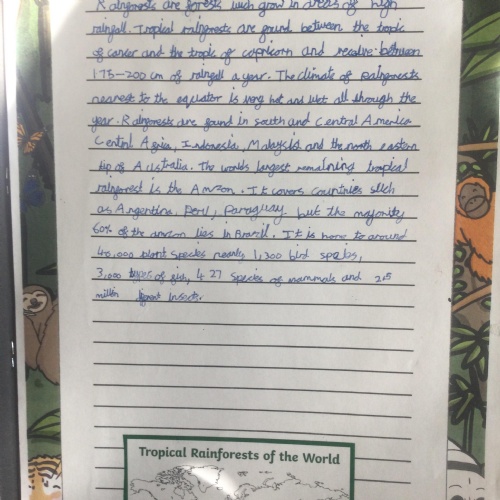 Rainforests are forests wich grow in areas of high
rainfall. Tropical rainforests are found between the tropic
of cancer and the tropic of capricorn and receive between
175-200 cm of rainfall a year. The climate of rainforests
nearest to the equator is very hot and wet all through the
year. Rainforests are found in south and Central America
Central Africa, Indonesia, Malaysia and the north eastern
tip of Australia. The worlds largest remaining tropical
rainforest is the Amzon. It covers countries such
as Argentina, Peru, Paraguay but the majority
60% of the amzon lies in Brazil. It is home to around
40,000 plant species nearly 1,300 bird species,
3,000 types of fish, 427 species of mammals and 2.5
million insects.
Tropical Rainforests of the World